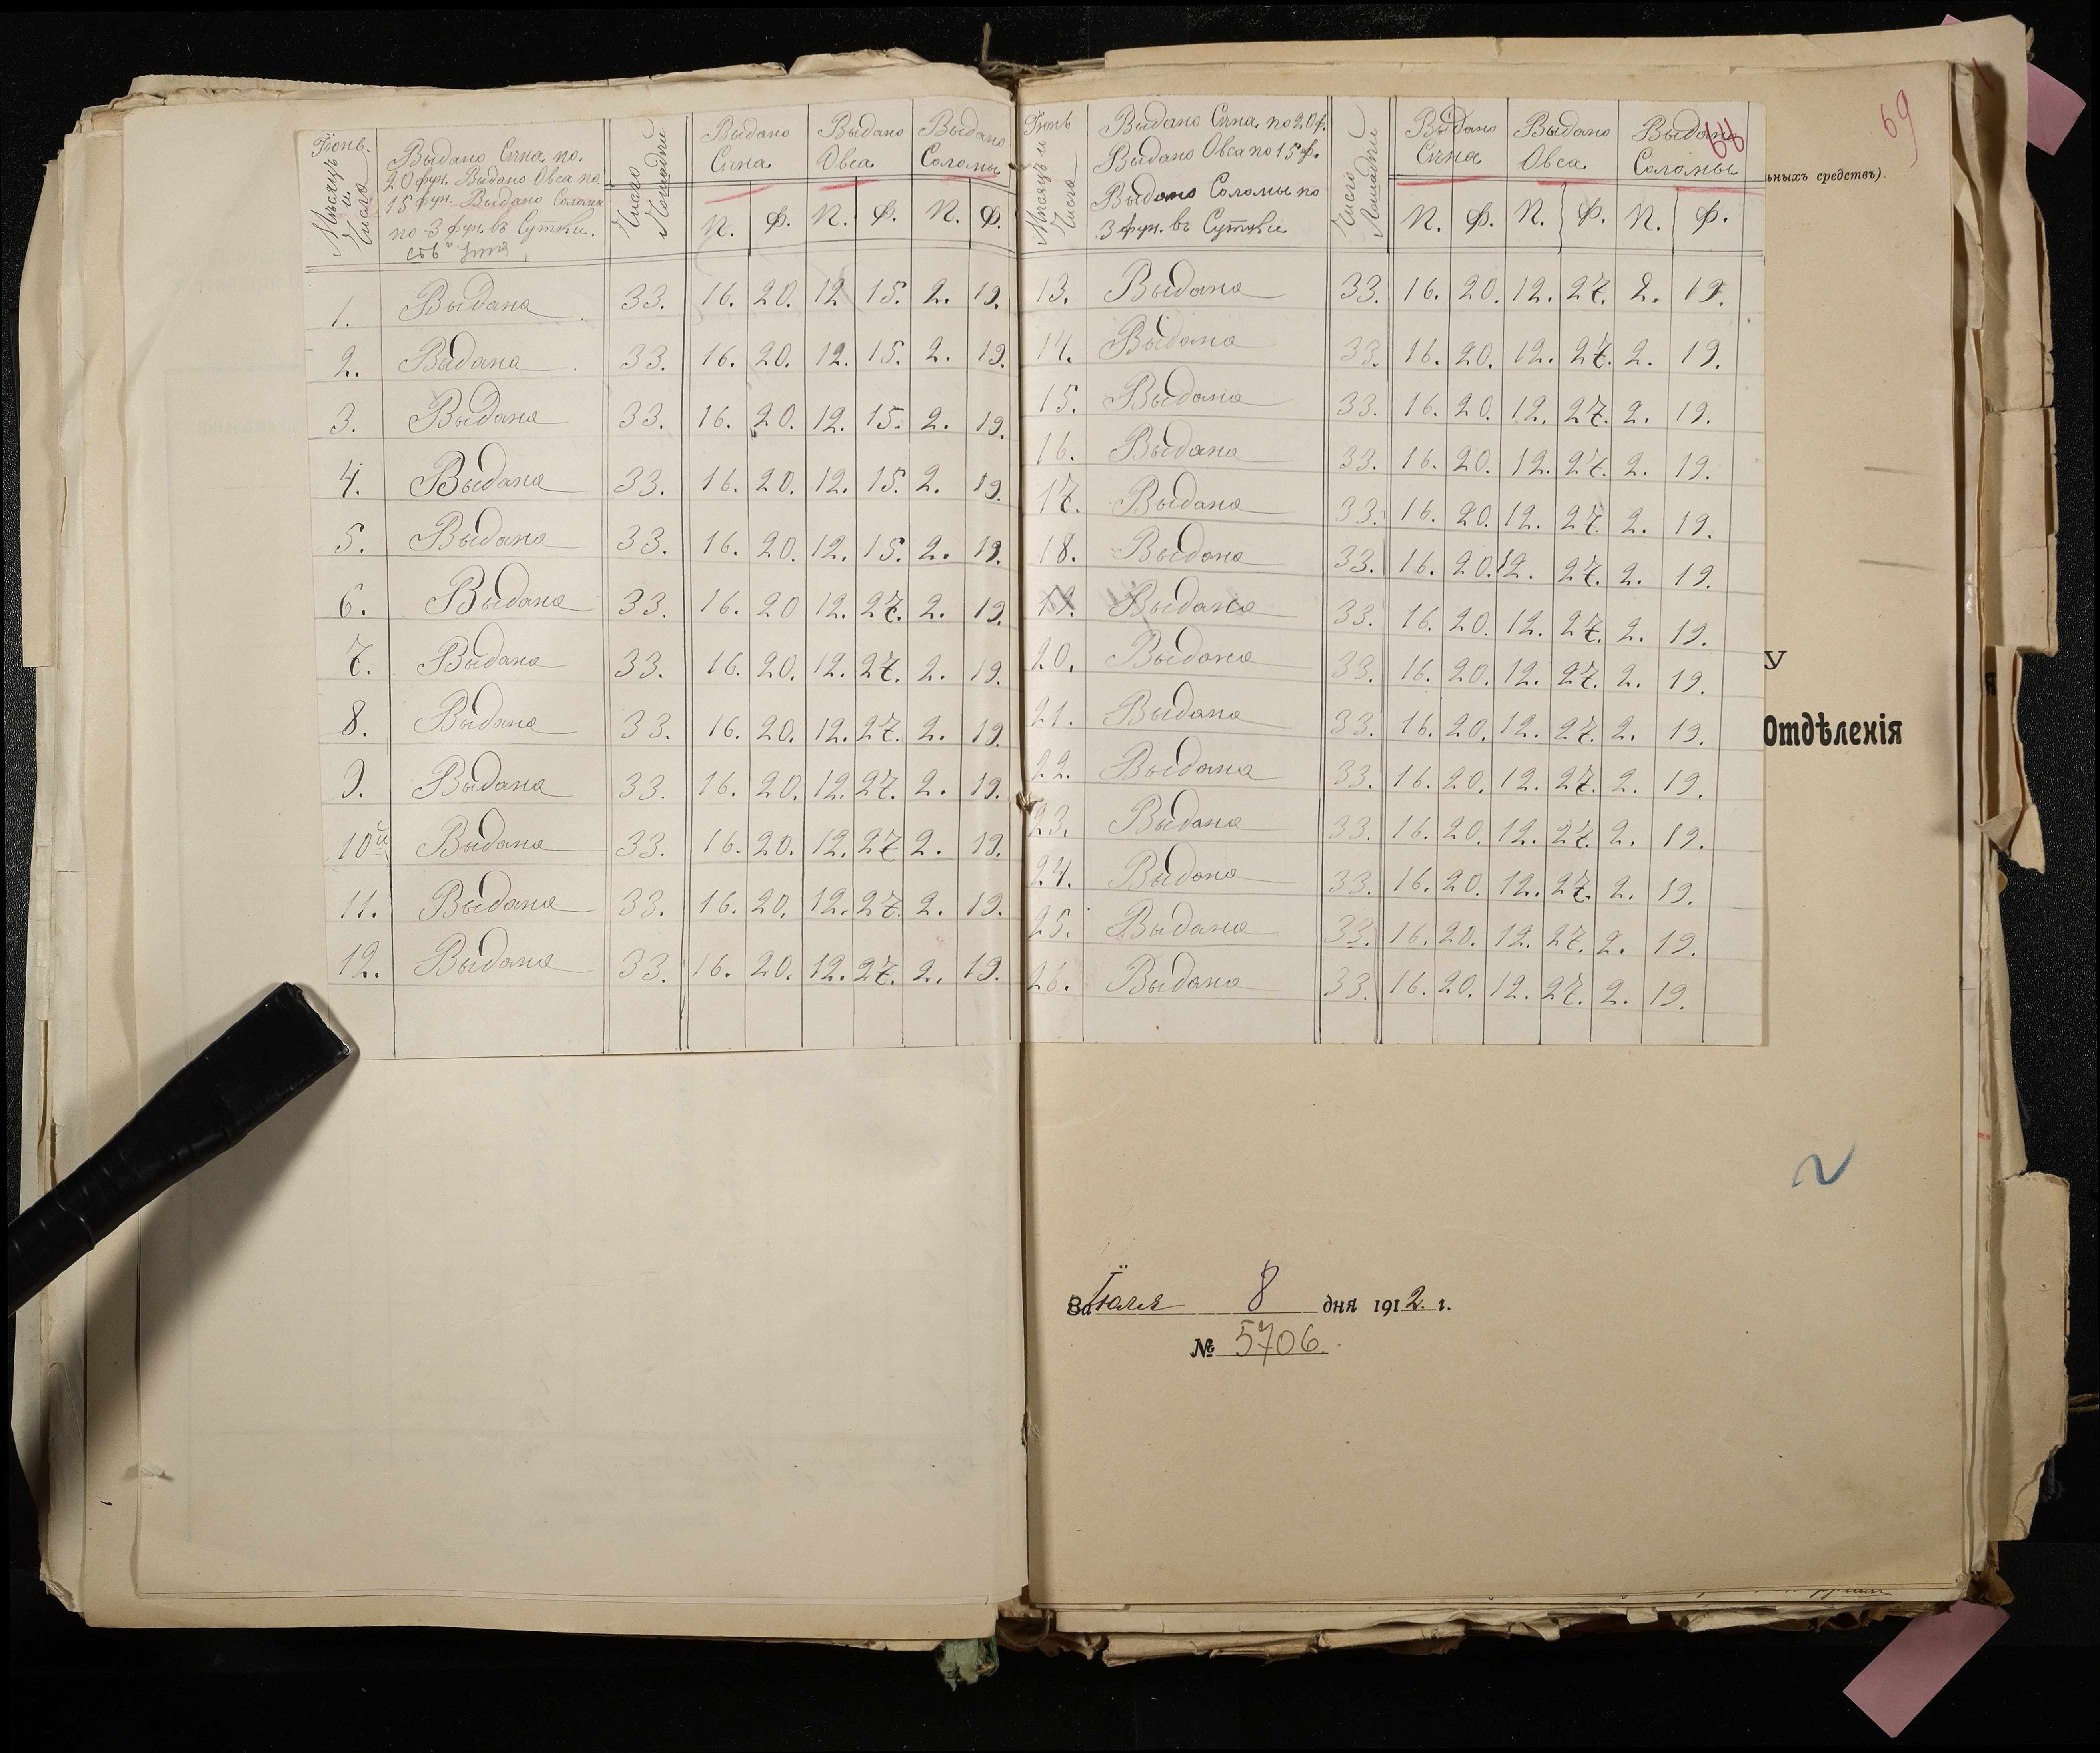 Іюнь.
Мѣсяцъ и Числа
Выдано Сѣна по.
20 фун. Выдано Овса по
15 фун. Выдано Соломы
по 3 фун. въ Сутки.
Число Лошадей
Выдано Сѣна
Выдано Овса
Выдано Соломы
П. Ф. П. Ф. П. Ф.
1. Выдана 33. 16. 20. 12 15. 2. 19.
2. Выдана 33. 16. 20. 12. 15. 2. 19.
3. Выдана 33. 16. 20. 12. 15. 2. 19.
4. Выдана 33. 16. 20. 12. 15. 2. 19.
5. Выдана 33. 16. 20. 12. 15. 2. 19.
6. Выдана 33. 16. 20 12. 27. 2. 19.
7. Выдана 33. 16. 20. 12. 27. 2. 19.
8. Выдана 33. 16. 20. 12. 27. 2. 19.
9. Выдана 33. 16. 20. 12. 27. 2. 19.
10й Выдана 33. 16. 20. 12. 27 2. 19.
11. Выдана 33. 16. 20. 12. 27. 2. 19.
12. Выдана 33. 16. 20. 12. 27. 2. 19.
69
68
Іюнь
Мѣсяцъ и Числа
Выдано Сѣна по 20 ф.
Выдано Овса по 15 ф.
Выдано Соломы по
3 фун. въ Сутки
Число Лошадей
Выдано Сѣна
Выдано Овса
Выдано Соломы
П. Ф. П. Ф. П. Ф.
13. Выдана 33. 16. 20. 12. 27. 2. 19.
14. Выдана 33. 16. 20. 12. 27. 2. 19.
15. Выдана 33. 16. 20. 12. 27. 2. 19.
16. Выдана 33. 16. 20. 12. 27. 2. 19.
17. Выдана 33. 16. 20. 12. 27. 2. 19.
18. Выдана 33. 16. 20. 12. 27. 2. 19.
19. Выдана 33. 16. 20. 12. 27. 2. 19.
20. Выдана 33. 16. 20. 12. 27. 2. 19.
21. Выдана 33. 16. 20. 12. 27. 2. 19.
22. Выдана 33. 16. 20. 12. 27. 2. 19.
23. Выдана 33. 16. 20. 12. 27. 2. 19.
24. Выдана 33. 16. 20. 12. 27. 2. 19.
25. Выдана 33. 16. 20. 12. 27. 2. 19.
26. Выдана 33. 16. 20. 12. 27. 2. 19.
ьныхъ средствъ).
У
Отдѣленія
За Іюля 8 дня 1912 г.
№ 5706.